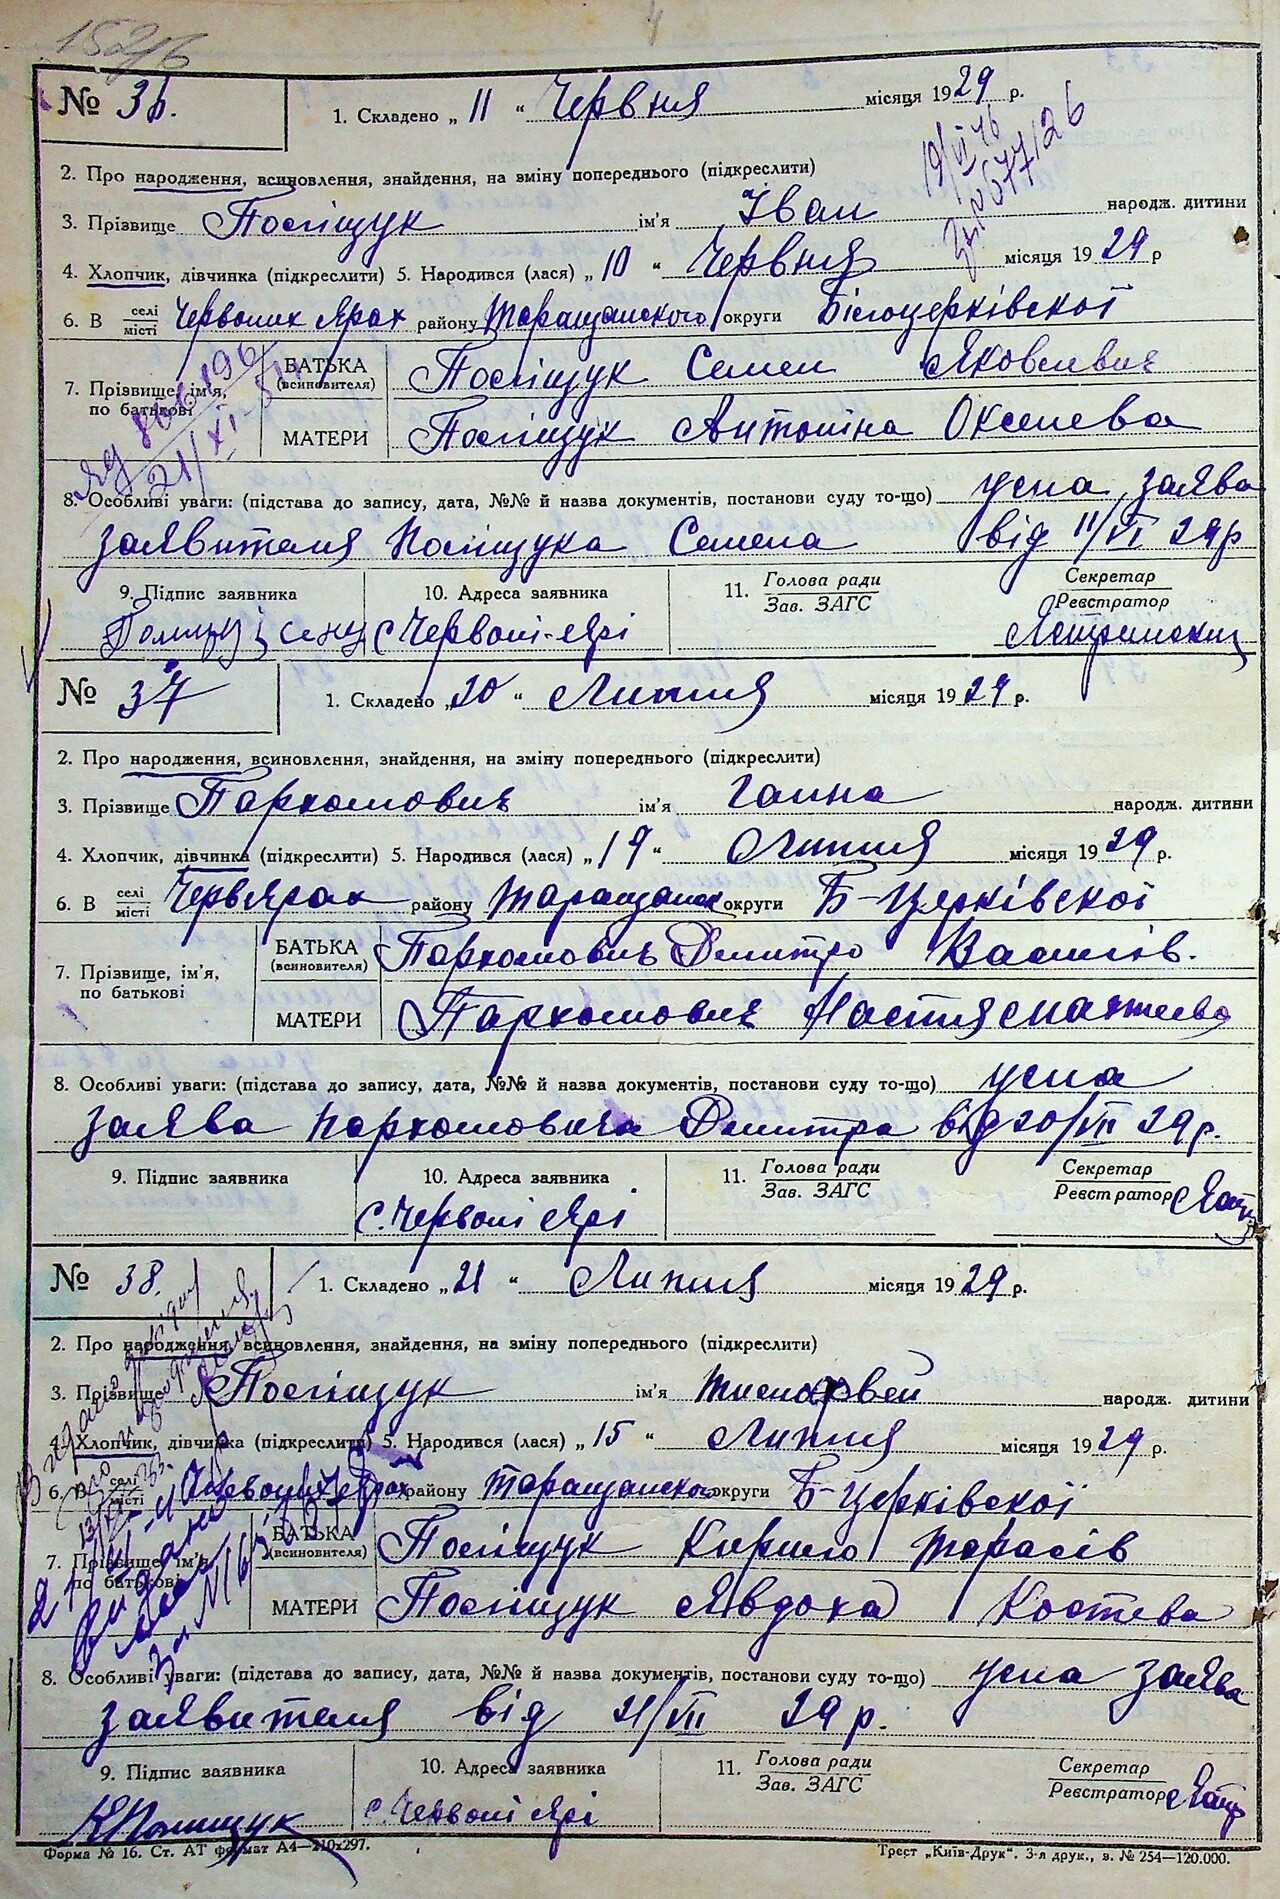 152/6
№ 36.
1. Складено „ 11 “ Червня місяця 1929 р.
2. Про народження, всиновлення, знайдення, на зміну попереднього (підкреслити)
19/VI 46
3. Прізвище Поліщук ім'я Іван народж. дитини
4. Хлопчик, дівчинка (підкреслити) 5. Народився (лася) „ 10 “ Червня місяця 1929 р
6. В селі/місті Червоних Ярах району Таращанского округи Білоцерківскої
7. Прізвище, ім'я, по батькові
БАТЬКА (всиновителя) Поліщук Семен Яковлевич
МАТЕРИ Поліщук Антоніна Окслева
8. Особливі уваги: (підстава до запису, дата, №№ й назва документів, постанови суду то-що) усна заява
заявителя Поліщука Семена від 11/VI 29 р
9. Підпис заявника
10. Адреса заявника с. Червоні-Ярі
11. Голова ради / Зав. ЗАГС
Секретар / Реєстратор
№ 37
1. Складено „ 20 “ Липня місяця 1929 р.
2. Про народження, всиновлення, знайдення, на зміну попереднього (підкреслити)
3. Прізвище Пархомович ім'я Ганна народж. дитини
4. Хлопчик, дівчинка (підкреслити) 5. Народився (лася) „ 19 “ Липня місяця 1929 р.
6. В селі/місті Черв Ярах району Таращанск округи Б-Церківскої
7. Прізвище, ім'я, по батькові
БАТЬКА (всиновителя) Пархомович Дмитро Василів.
МАТЕРИ Пархомович Настя
8. Особливі уваги: (підстава до запису, дата, №№ й назва документів, постанови суду то-що) усна
заява Пархомовича Дмитра від 20/VII 29 р.
9. Підпис заявника
10. Адреса заявника с. Червоні Ярі
11. Голова ради / Зав. ЗАГС
Секретар / Реєстратор
№ 38.
1. Складено „ 21 “ Липня місяця 1929 р.
2. Про народження, всиновлення, знайдення, на зміну попереднього (підкреслити)
3. Прізвище Поліщук ім'я народж. дитини
4. Хлопчик, дівчинка (підкреслити) 5. Народився (лася) „ 15 “ Липня місяця 1929 р.
6. В селі/місті Червоних Ярах району Таращанского округи Б-Церківскої
7. Прізвище, ім'я, по батькові
БАТЬКА (всиновителя) Поліщук Кирило Тарасів
МАТЕРИ Поліщук Явдоха Костева
8. Особливі уваги: (підстава до запису, дата, №№ й назва документів, постанови суду то-що) усна заява
заявителя від 21/VII 29 р.
9. Підпис заявника КПолищук
10. Адреса заявника с. Червоні Ярі
11. Голова ради / Зав. ЗАГС
Секретар / Реєстратор
Форма № 16. Ст. АТ формат А4—210х297.
Трест „Київ-Друк“. 3-я друк., в. № 254—120.000.